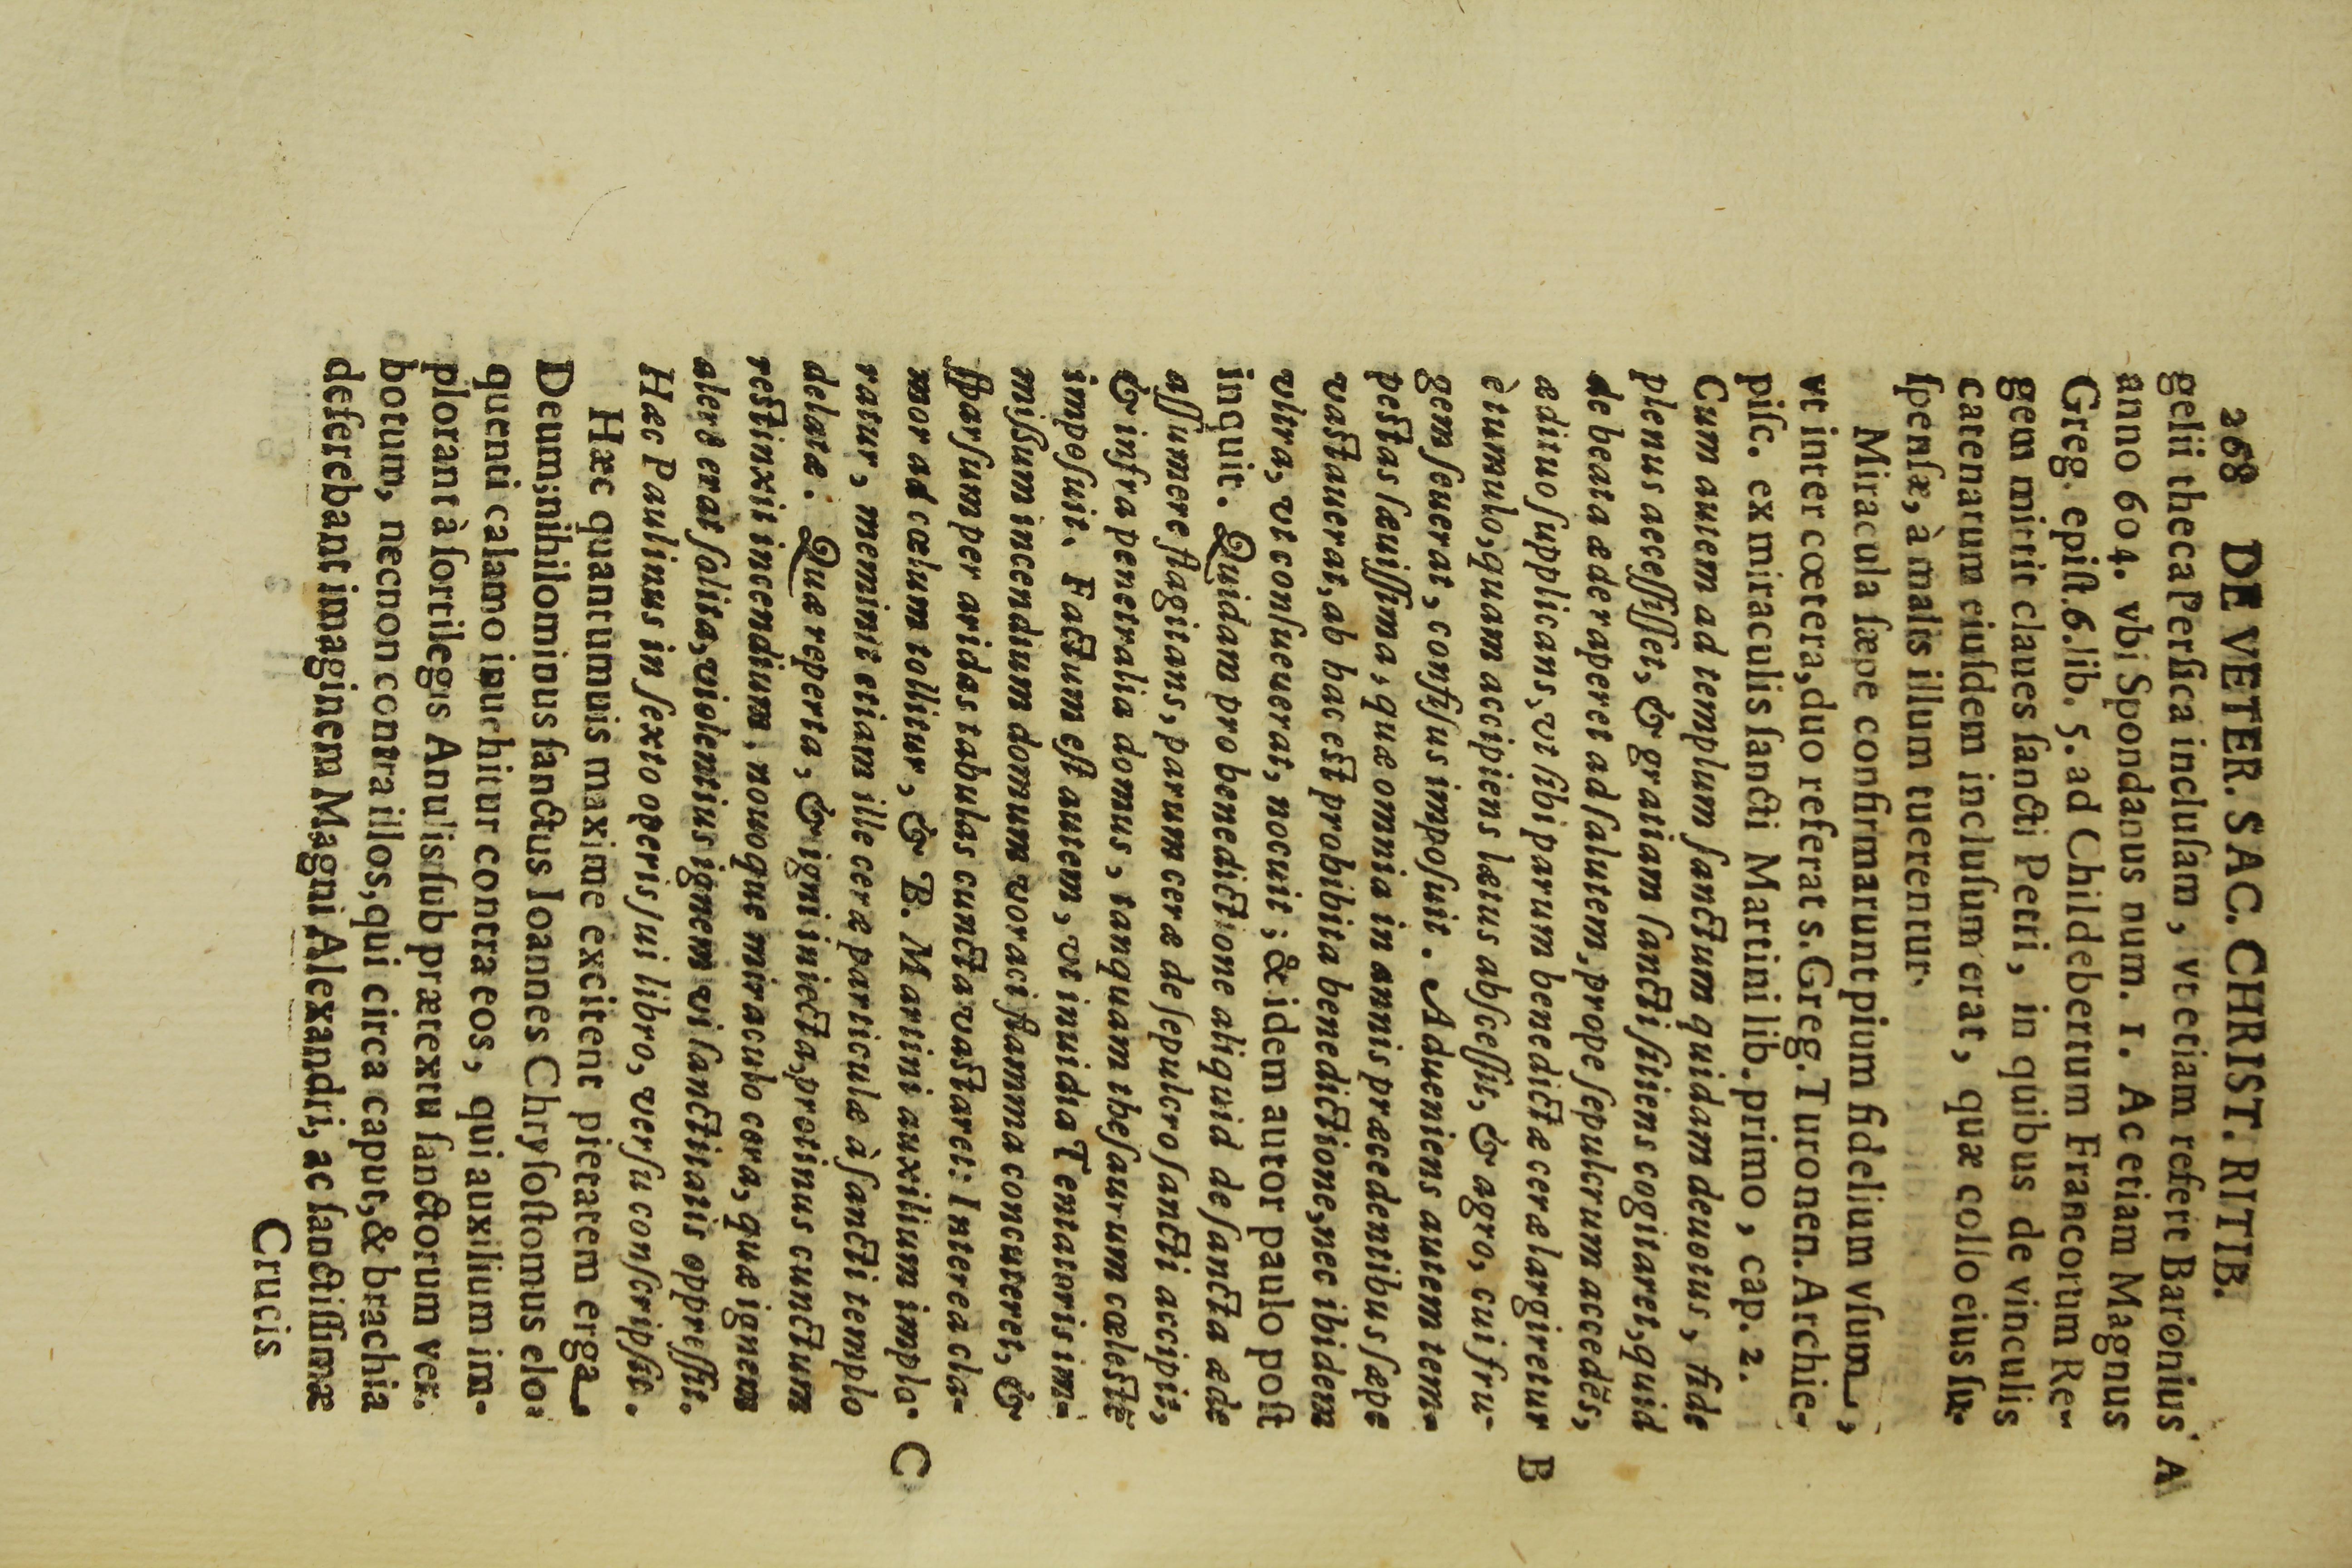 268 DE VETER. SAC. CHRIST. RITIB.
gelii theca Perſica incluſam, vt etiam refert Baronius A
anno 604. vbi Spondanus num. 1. Ac etiam Magnus
Greg. epiſt. 6. lib. 5. ad Childebertum Francorum Re-
gem mittit claues ſancti Petri, in quibus de vinculis
catenarum eiuſdem incluſum erat, quæ collo eius ſu-
ſpenſæ, à malis illum tuerentur.
Miracula ſæpe confirmarunt pium fidelium vſum,
vt inter cœtera, duo referat s. Greg. Turonen. Archie-
piſc. ex miraculis ſancti Martini lib. primo, cap. 2.
Cum autem ad templum ſanctum quidam deuotus, fide
plenus acceſſiſſet, & gratiam ſancti ſitiens cogitaret, quid
de beata æde raperet ad ſalutem, prope ſepulcrum accedẽs,
ædituo ſupplicans, vt ſibi parum benedictæ ceræ largiretur B
è tumulo, quam accipiens lætus abſceſſit, & agro, cui fru-
gem ſeuerat, confiſus impoſuit. Adueniens autem tem-
peſtas ſæuiſſima, quæ omnia in annis præcedentibus ſæpe
vaſtauerat, ab hac eſt prohibita benedictione, nec ibidem
vltra, vt conſueuerat, nocuit; & idem autor paulo poſt
inquit. Quidam pro benedictione aliquid de ſancta æde
aſſumere flagitans, parum ceræ de ſepulcro ſancti accipit,
& infra penetralia domus, tanquam theſaurum cæleſtẽ
impoſuit. Factum eſt autem, vt inuidia Tentatoris im-
miſſum incendium domum voraci flamma concuteret, &
ſparſum per aridas tabulas cuncta vaſtaret: Interea cla-
mor ad cœlum tollitur, & B. Martini auxilium implo- C
ratur, meminit etiam ille ceræ particulæ à ſancti templo
delatæ. Quæ reperta, & igni iniecta, protinus cunctum
reſtinxit incendium, nouoque miraculo cera, quæ ignem
alere erat ſolita, violentius ignem vi ſanctitatis oppreſſit.
Hæc Paulinus in ſexto operis ſui libro, verſu conſcripſit.
Hæc quantumuis maxime excitent pietatem erga
Deum; nihilominus ſanctus Ioannes Chryſoſtomus elo-
quenti calamo inuehitur contra eos, qui auxilium im-
plorant à ſortilegis Anulis ſub prætextu ſanctorum ver-
botum, necnon contra illos, qui circa caput, & brachia
deferebant imaginem Magni Alexandri, ac ſanctiſſimæ
Crucis